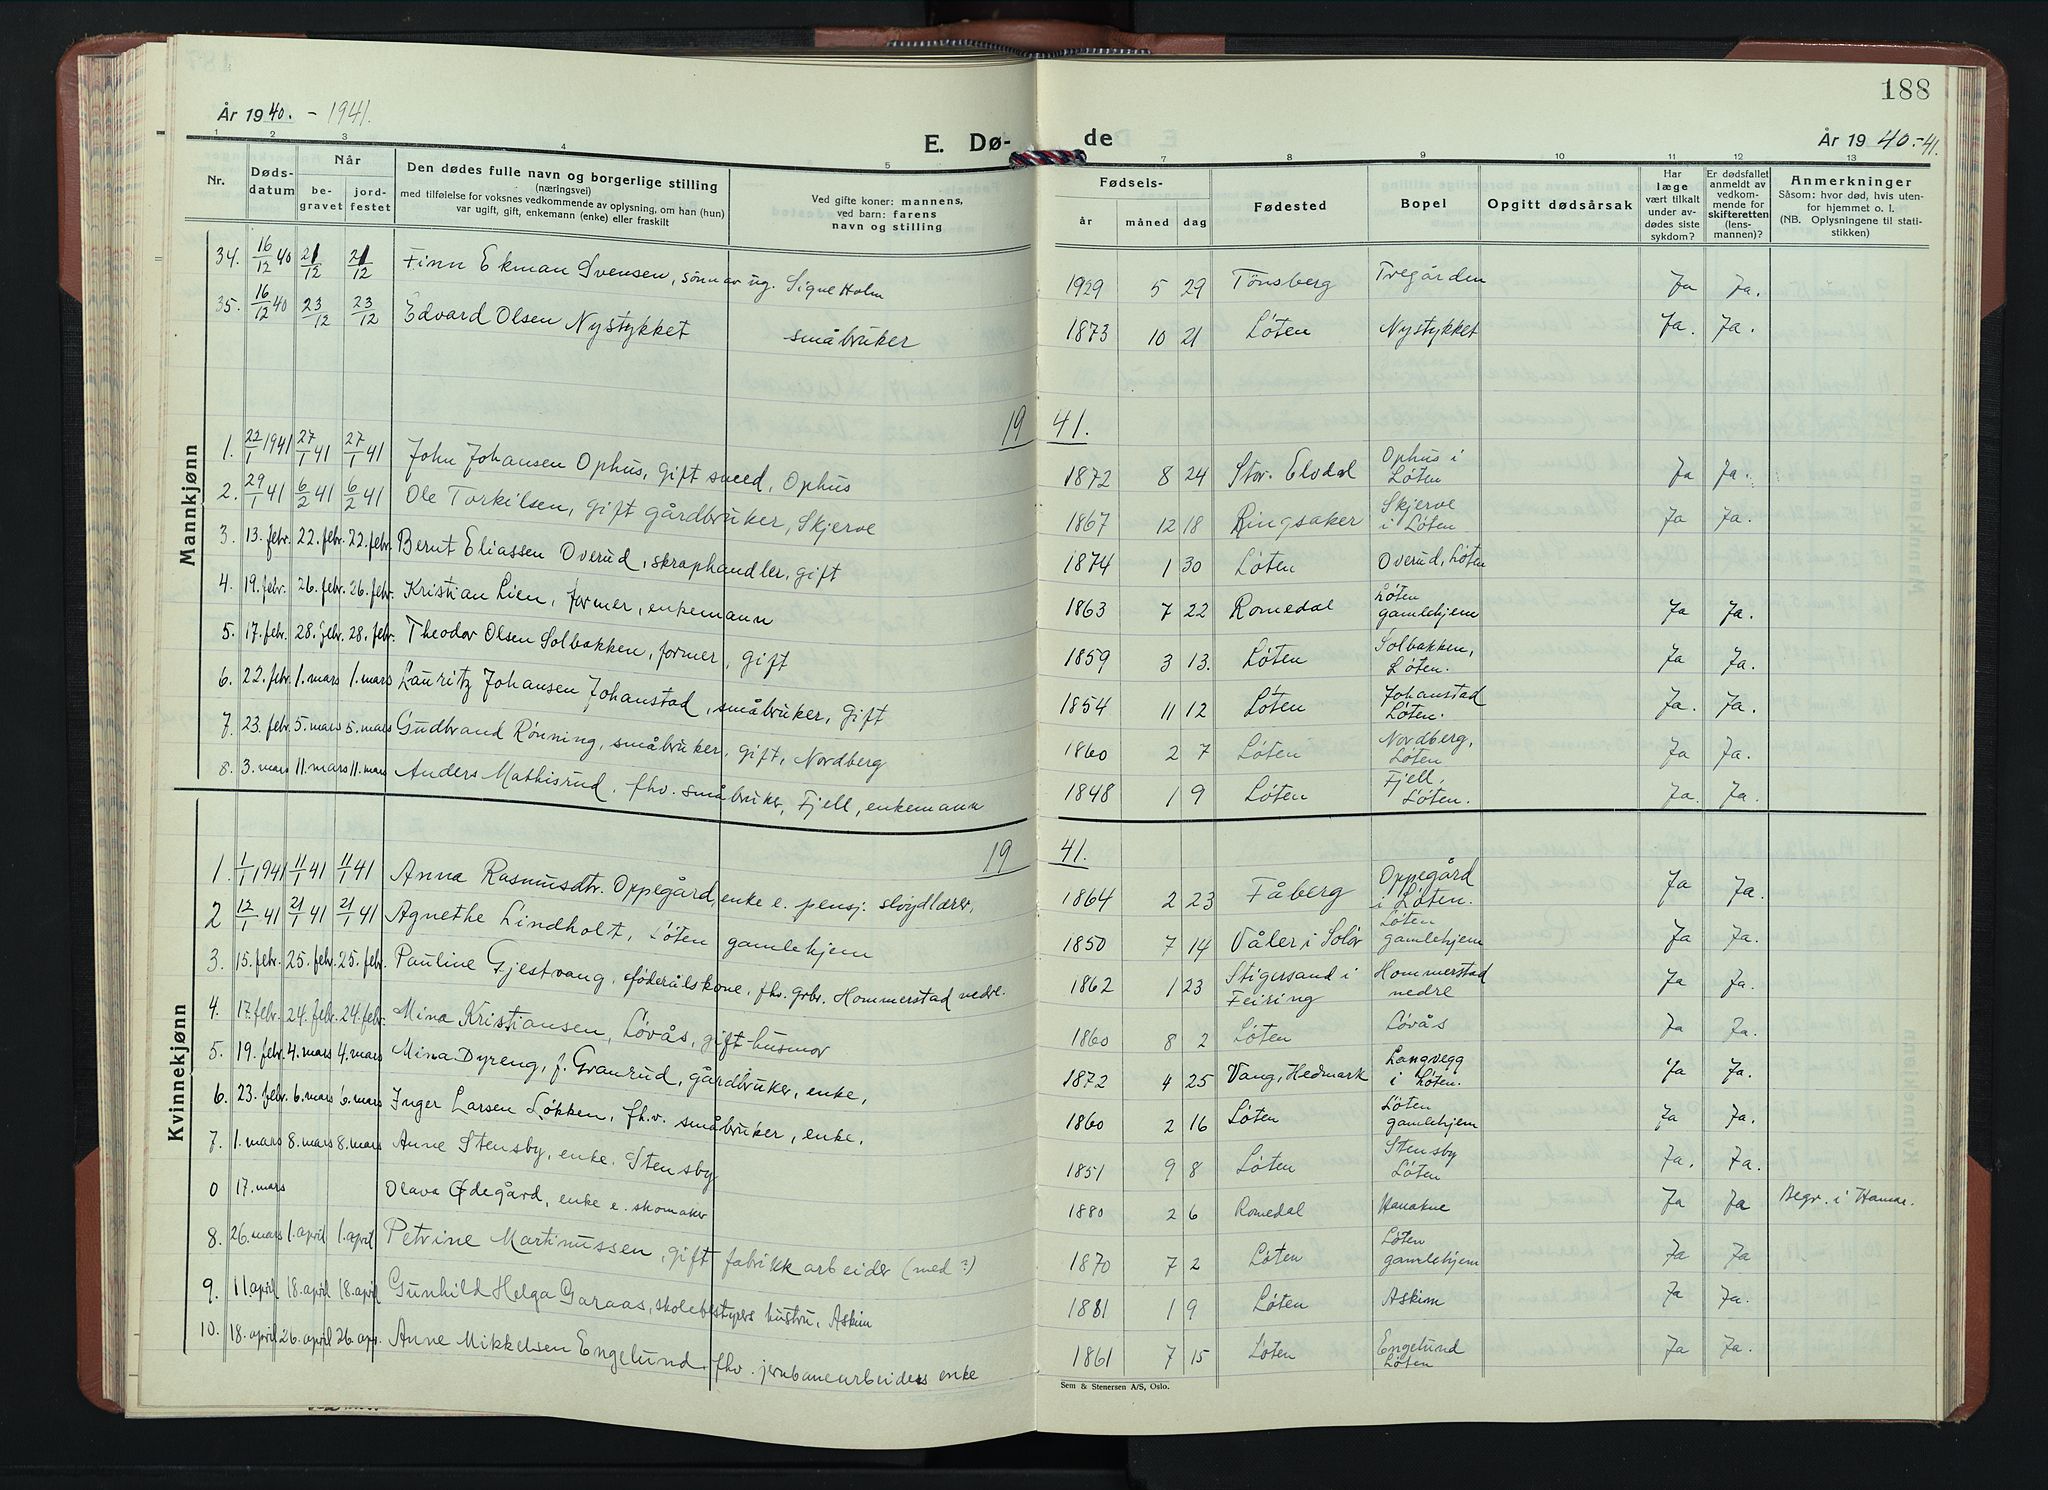 År 1940. - 1941.
E. Dø- de
188
År 1940.-41.
1 2 3 4 5 7 8 9 10 11 12 13
Nr.
Døds-
datum
Når
be-
gravet
jord-
festet
Den dødes fulle navn og borgerlige stilling
(næringsvei)
med tilføielse for voksnes vedkommende av oplysning, om han (hun)
var ugift, gift, enkemann (enke) eller fraskilt
Ved gifte koner: mannens,
ved barn: farens
navn og stilling
Fødsels-
år måned dag
Fødested
Bopel
Opgitt dødsårsak
Har
læge
vært tilkalt
under av-
dødes siste
sykdom?
Er dødsfallet
anmeldt av
vedkom-
mende for
skifteretten
(lens-
mannen)?
Anmerkninger
Såsom: hvor død, hvis uten-
for hjemmet o. l.
(NB. Oplysningene til stati-
stikken)
Mannkjønn
34. 16/12 40 21/12 21/12 Finn Ekman Svensen, sønn av ug. Signe Holm 1929 5 29 Tønsberg Tregården Ja Ja.
35. 16/12 40 23/12 23/12 Edvard Olsen Nystykket småbruker 1873 10 21 Løten Nystykket Ja. Ja.
19 41.
1. 22/1 1941 27/1 41 27/1 41 John Johansen Ophus, gift smed, Ophus 1872 8 24 Stor-Elvdal Ophus i Løten Ja Ja.
2. 29/1 41 6/2 41 6/2 41 Ole Torkilsen, gift gårdbruker, Skjerve 1867 12 18 Ringsaker Skjerve i Løten Ja Ja.
3. 13. febr. 22. febr. 22. febr. Bernt Eliassen Overud, skraphandler, gift 1874 1 30 Løten Overud, Løten
4. 19. febr. 26. febr. 26. febr. Kristian Lien, former, enkemann 1863 7 22 Romedal Løten gamlehjem Ja Ja.
5. 17. febr. 28. febr. 28. febr. Theodor Olsen Solbakken, former, gift 1859 3 13. Løten Solbakken, Løten. Ja Ja.
6. 22. febr. 1. mars 1. mars Lauritz Johansen Johanstad, småbruker, gift 1854 11 12 Løten Johanstad Løten. Ja. Ja.
7. 23. febr. 5. mars 5. mars Gudbrand Rønning, småbruker, gift, Nordberg 1860 2 7 Løten Nordberg, Løten Ja Ja.
8. 3. mars 11. mars 11. mars Anders Mathisrud, fhv. småbruker, Fjell, enkemann 1848 1 9 Løten Fjell, Løten. Ja. Ja.
Kvinnekjønn
19 41.
1. 1/1 1941 11/1 41 11/1 41 Anna Rasmusdtr. Oppegård, enke e. pensj. sløydlærer, 1864 2 23 Fåberg Oppegård i Løten. Ja Ja.
2 12/1 41 21/1 41 21/1 41 Agnethe Lindholt, Løten gamlehjem 1850 7 14 Våler i Solør Løten gamlehjem Ja Ja.
3. 15. febr. 25. febr. 25. febr. Pauline Gjestvang, føderålskone, fhv. grbr. Hommerstad nedre. 1862 1 23 Stigersand i Feiring Hommerstad nedre Ja Ja.
4. 17. febr. 24. febr. 24. febr. Mina Kristiansen, Løvås, gift husmor 1860 8 2 Løten Løvås Ja Ja.
5. 19. febr 4. mars 4. mars Mina Dyreng, f. Granrud, gårdbruker, enke, 1872 4 25 Vang, Hedmark Langvegg i Løten. Ja Ja.
6. 23. febr. 6. mars 6. mars Inger Larsen Løkken, fhv. småbruker, enke. 1860 2 16 Løten Løten gamlehjem Ja Ja.
7. 1. mars 8. mars 8. mars Anne Stensby, enke. Stensby 1851 9 8 Løten Stensby Løten Ja. Ja.
0 17. mars Olava Ødegård, enke e. skomaker 1880 2 6 Romedal Ja Ja Begr. i Hamar.
8. 26. mars 1. april 1. april Petrine Martinussen, gift fabrikkarbeider (med?) 1870 7 2 Løten Løten gamlehjem Ja Ja.
9. 11 april 18. april 18. april Gunhild Helga Garaas, skolebestyrers hustru, Askim 1881 1 9 Løten Askim Ja Ja.
10. 18. april 26. april 26. apr. Anne Mikkelsen Engelund, fhv. jernbanearbeiders enke 1861 7 15 Løten Engelund Løten Ja Ja.
Sem & Stenersen A/S, Oslo.